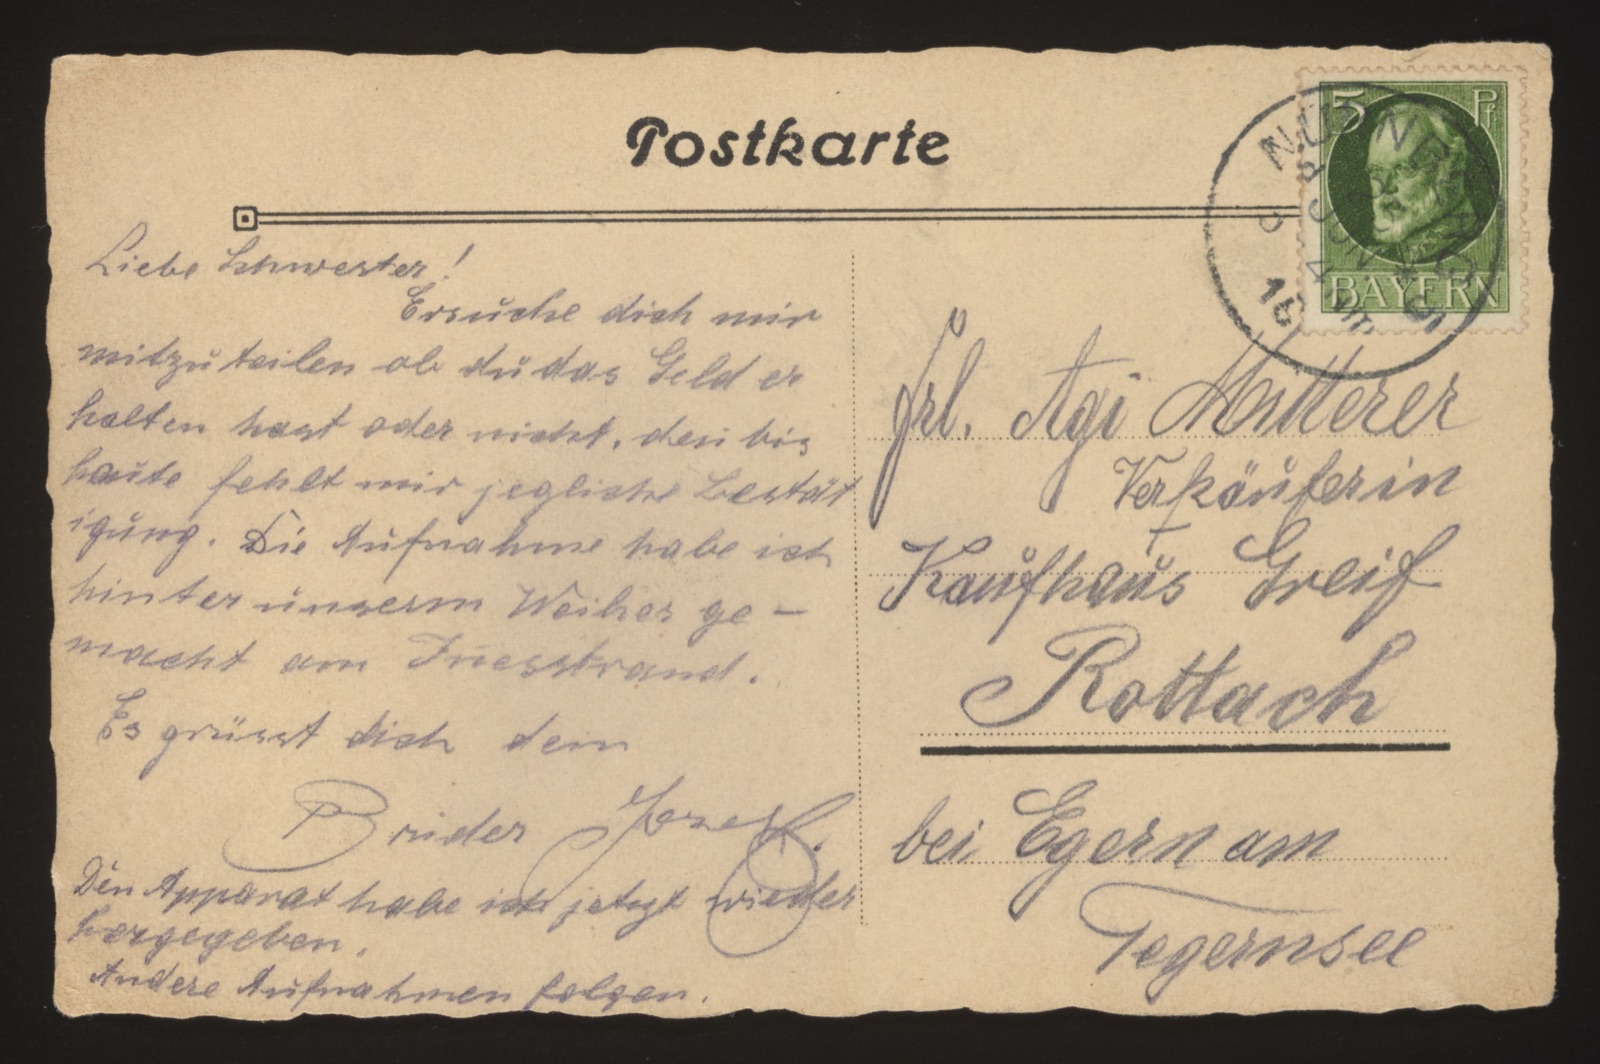 Postkarte
5 Pf
BAYERN
NÜRNBERG
Liebe Schwester!
Ersuche dich mir
mitzuteilen ob du das Geld er
halten hast oder nicht, den bis
heute fehlt mir jegliche Bestät
igung. Die Aufnahme habe ich
hinter unserm Weiher ge-
macht am
Es grüsst dich dein
Bruder Josef.
Den Apparat habe ich jetzt wieder
hergegeben.
Andere Aufnahmen folgen.
Frl. Agi Mitterer
Verkäuferin
Kaufhaus Greif
Rottach
bei Egern am
Tegernsee